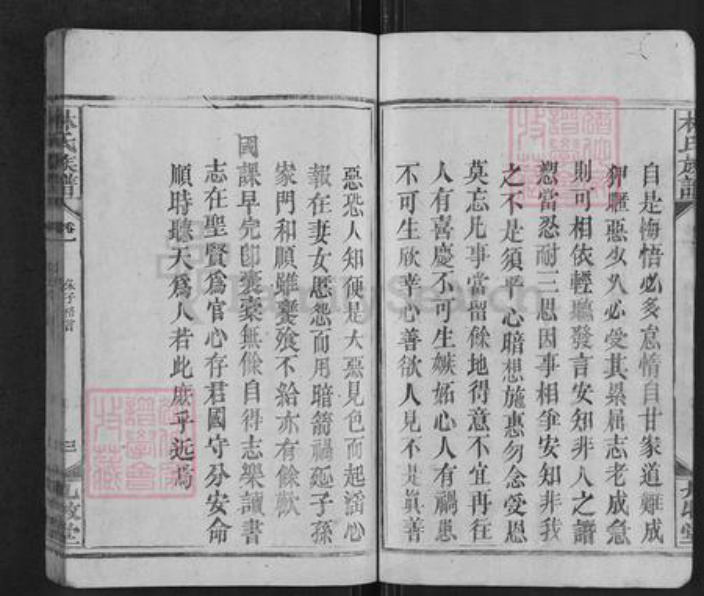 林氏族譜
自是悔悟必多怠惰自甘家道難成
狎暱惡少久必受其累屈志老成急
則可相依輕聽發言安知非人之譖
愬當忍耐三思因事相爭安知非我
之不是須平心暗想施惠勿念受恩
莫忘凡事當留餘地得意不宜再往
人有喜慶不可生嫉妬心人有禍患
不可生欣幸心善欲人見不是真善
惡恐人知便是大惡見色而起淫心
報在妻女慝怨而用暗箭禍延子孫
家門和順雖饔飱不給亦有餘歡
國課早完卽囊橐無餘自得志樂讀書
志在聖賢爲官心存君國守分安命
順時聽天爲人若此庶乎近焉
林氏族譜
卷一
朱子格言
三
九牧堂
FamilySearch